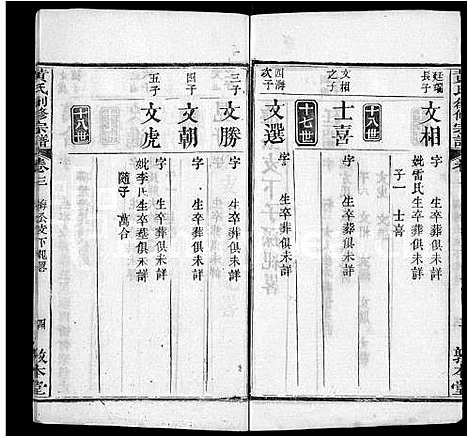 黃氏創修宗譜
敦本堂
廷瑞長子
文相
字 生卒葬俱未詳
妣雷氏生卒葬俱未詳
子一 士喜
十八世
文相之子
士喜
字 生卒葬俱未詳
十七世
四海次子
文選
字 生卒葬俱未詳
三子
文勝
字 生卒葬俱未詳
四子
文朝
字 生卒葬俱未詳
五子
文虎
字 生卒葬俱未詳
妣李氏生卒葬俱未詳
隨子 萬合
十八世
黃氏創修宗譜
卷三
四
敦本堂